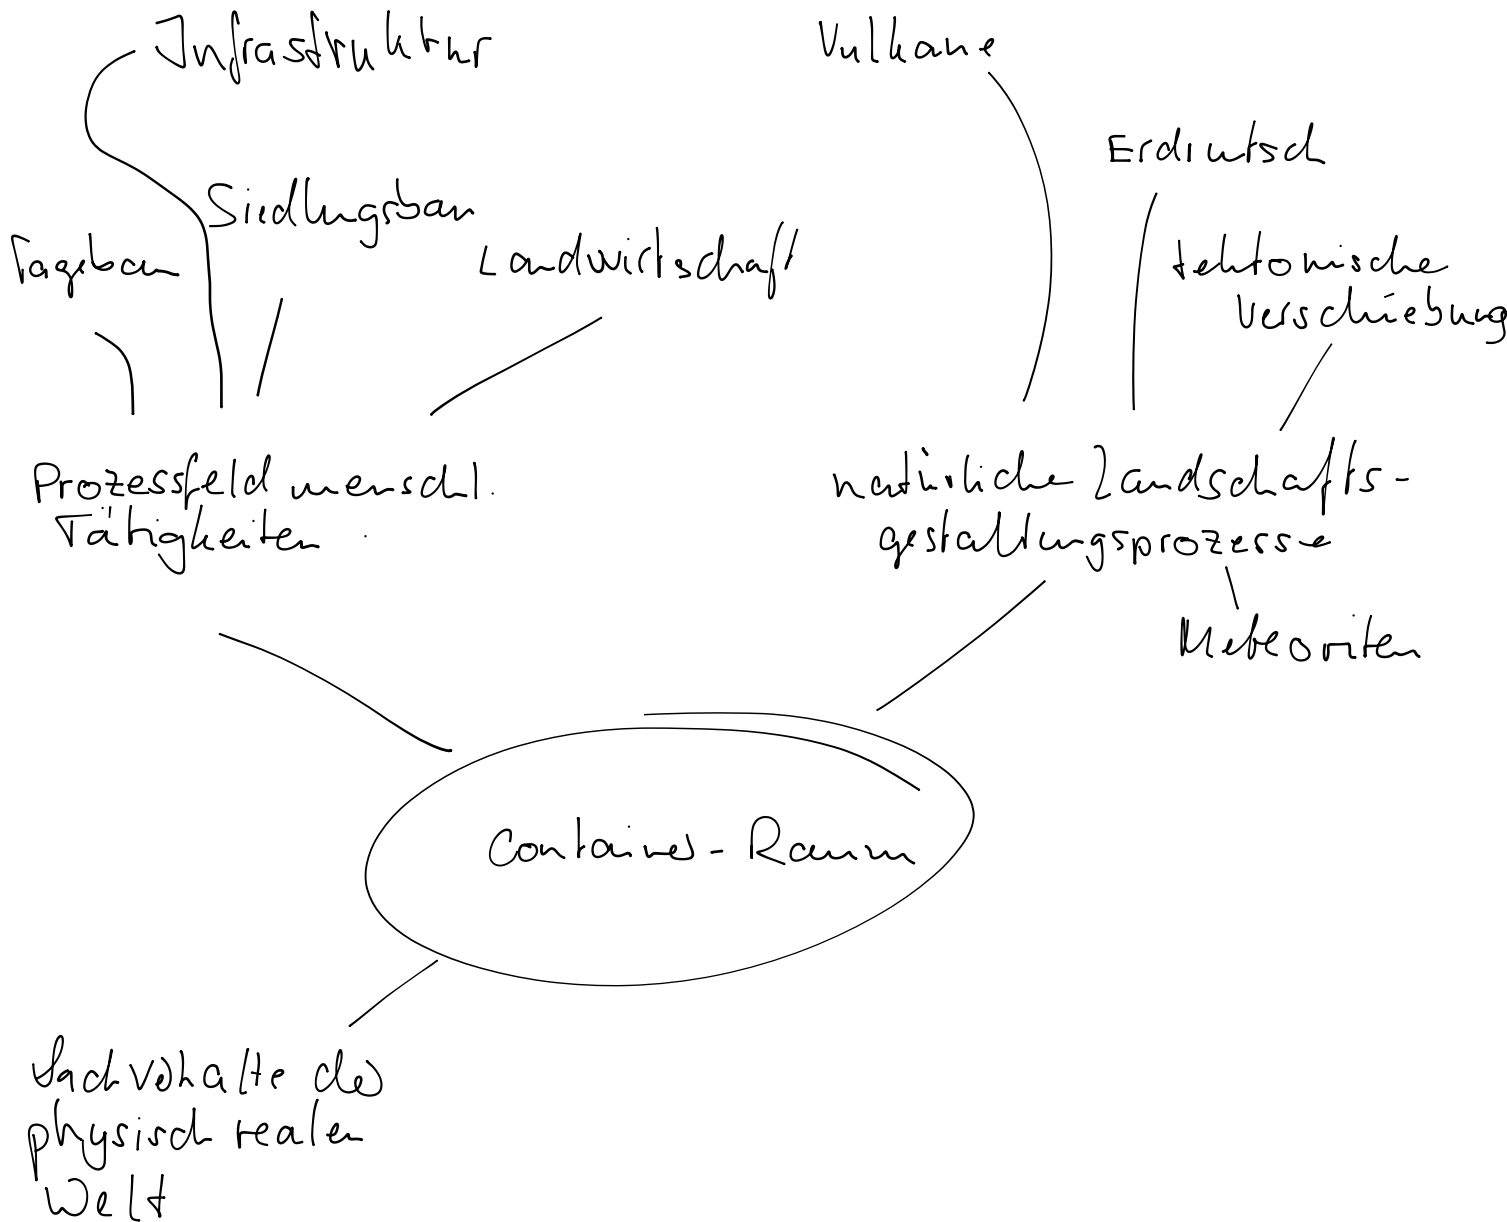 Infrastruktur
Vulkane
Erdrutsch
Siedlungsbau
Tagebau
Landwirtschaft
tektonische
Verschiebung
Prozessfeld menschl.
Tätigkeiten
natürliche Landschafts-
gestaltungsprozesse
Meteoriten
Container-Raum
Sachverhalte der
physisch realen
Welt